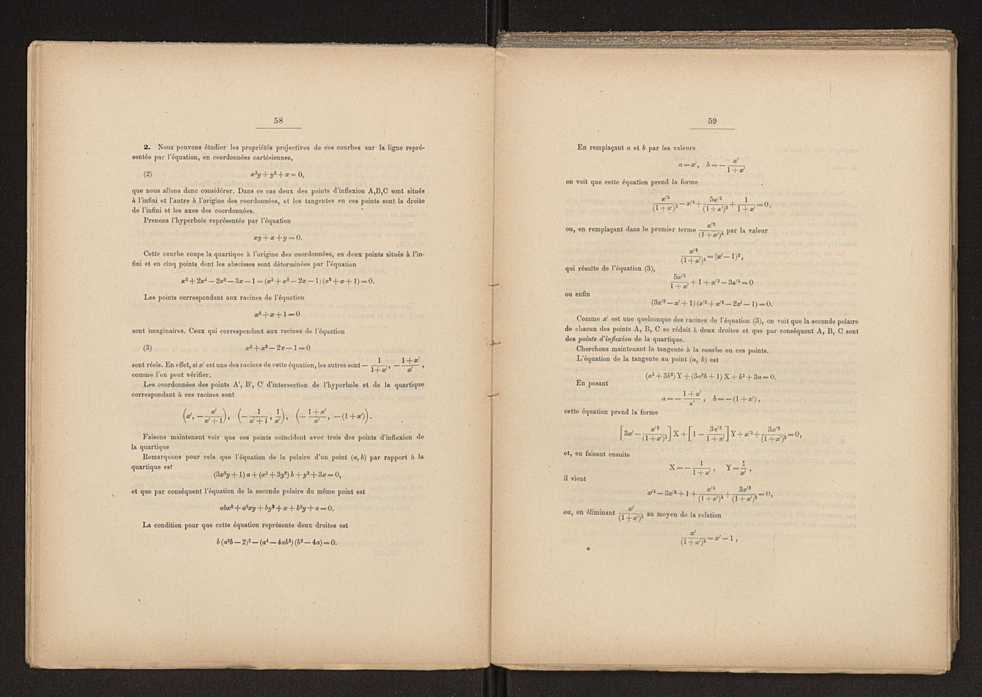 58
2. Nous pouvons étudier les propriétés projectives de ces courbes sur la ligne repré-
sentée par l'équation, en coordonnées cartésiennes,
(2) x³y + y³ + x = 0,
que nous allons donc considérer. Dans ce cas deux des points d'inflexion A, B, C sont situés
à l'infini et l'autre à l'origine des coordonnées, et les tangentes en ces points sont la droite
de l'infini et les axes des coordonnées.
Prenons l'hyperbole représentée par l'équation
xy + x + y = 0.
Cette courbe coupe la quartique à l'origine des coordonnées, en deux points situés à l'in-
fini et en cinq points dont les abscisses sont déterminées par l'équation
x⁵ + 2x⁴ — 2x² — 3x — 1 = (x³ + x² — 2x — 1) (x² + x + 1) = 0.
Les points correspondant aux racines de l'équation
x² + x + 1 = 0
sont imaginaires. Ceux qui correspondent aux racines de l'équation
(3) x³ + x² — 2x — 1 = 0
sont réels. En effet, si x' est une des racines de cette équation, les autres sont — 1/(1 + x'), — (1 + x')/x',
comme l'on peut vérifier.
Les coordonnées des points A', B', C' d'intersection de l'hyperbole et de la quartique
correspondant à ces racines sont
(x', — x'/(x' + 1)), (— 1/(x' + 1), 1/x'), (— (1 + x')/x', — (1 + x')).
Faisons maintenant voir que ces points coïncident avec trois des points d'inflexion de
la quartique
Remarquons pour cela que l'équation de la polaire d'un point (a, b) par rapport à la
quartique est
(3x²y + 1) a + (x³ + 3y²) b + y³ + 3x = 0,
et que par conséquent l'équation de la seconde polaire du même point est
abx² + a²xy + by² + x + b²y + a = 0.
La condition pour que cette équation représente deux droites est
b (a²b — 2)² — (a⁴ — 4ab²) (b³ — 4a) = 0.
59
En remplaçant a et b par les valeurs
a = x', b = — x'/(1 + x')
on voit que cette équation prend la forme
ou, en remplaçant dans le premier terme x'²/(1 + x')³ par la valeur
qui résulte de l'équation (3),
5x'²/(1 + x') + 1 + x'² — 3x'³ = 0
ou enfin
(3x'² — x' + 1) (x'³ + x'² — 2x' — 1) = 0.
Comme x' est une quelconque des racines de l'équation (3), on voit que la seconde polaire
de chacun des points A, B, C se réduit à deux droites et que par conséquent A, B, C sont
des points d'inflexion de la quartique.
Cherchons maintenant la tangente à la courbe en ces points.
L'équation de la tangente au point (a, b) est
(a³ + 3b²) Y + (3a²b + 1) X + b³ + 3a = 0.
En posant
a = — (1 + x')/x', b = — (1 + x'),
cette équation prend la forme
et, en faisant ensuite
X = — 1/(1 + x'), Y = 1/x',
il vient
ou, en éliminant x'/(1 + x')² au moyen de la relation
x'/(1 + x')² = x' — 1,